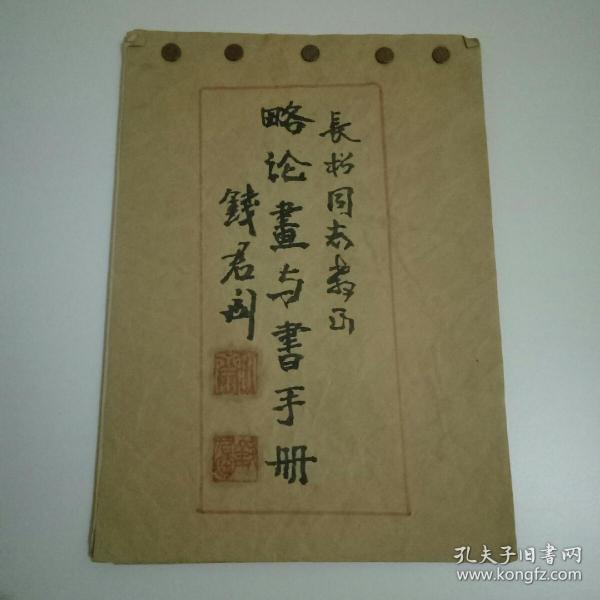 長松同志教正
略论畫与書手册
錢君匋
孔夫子旧書网
www.kongfz.com